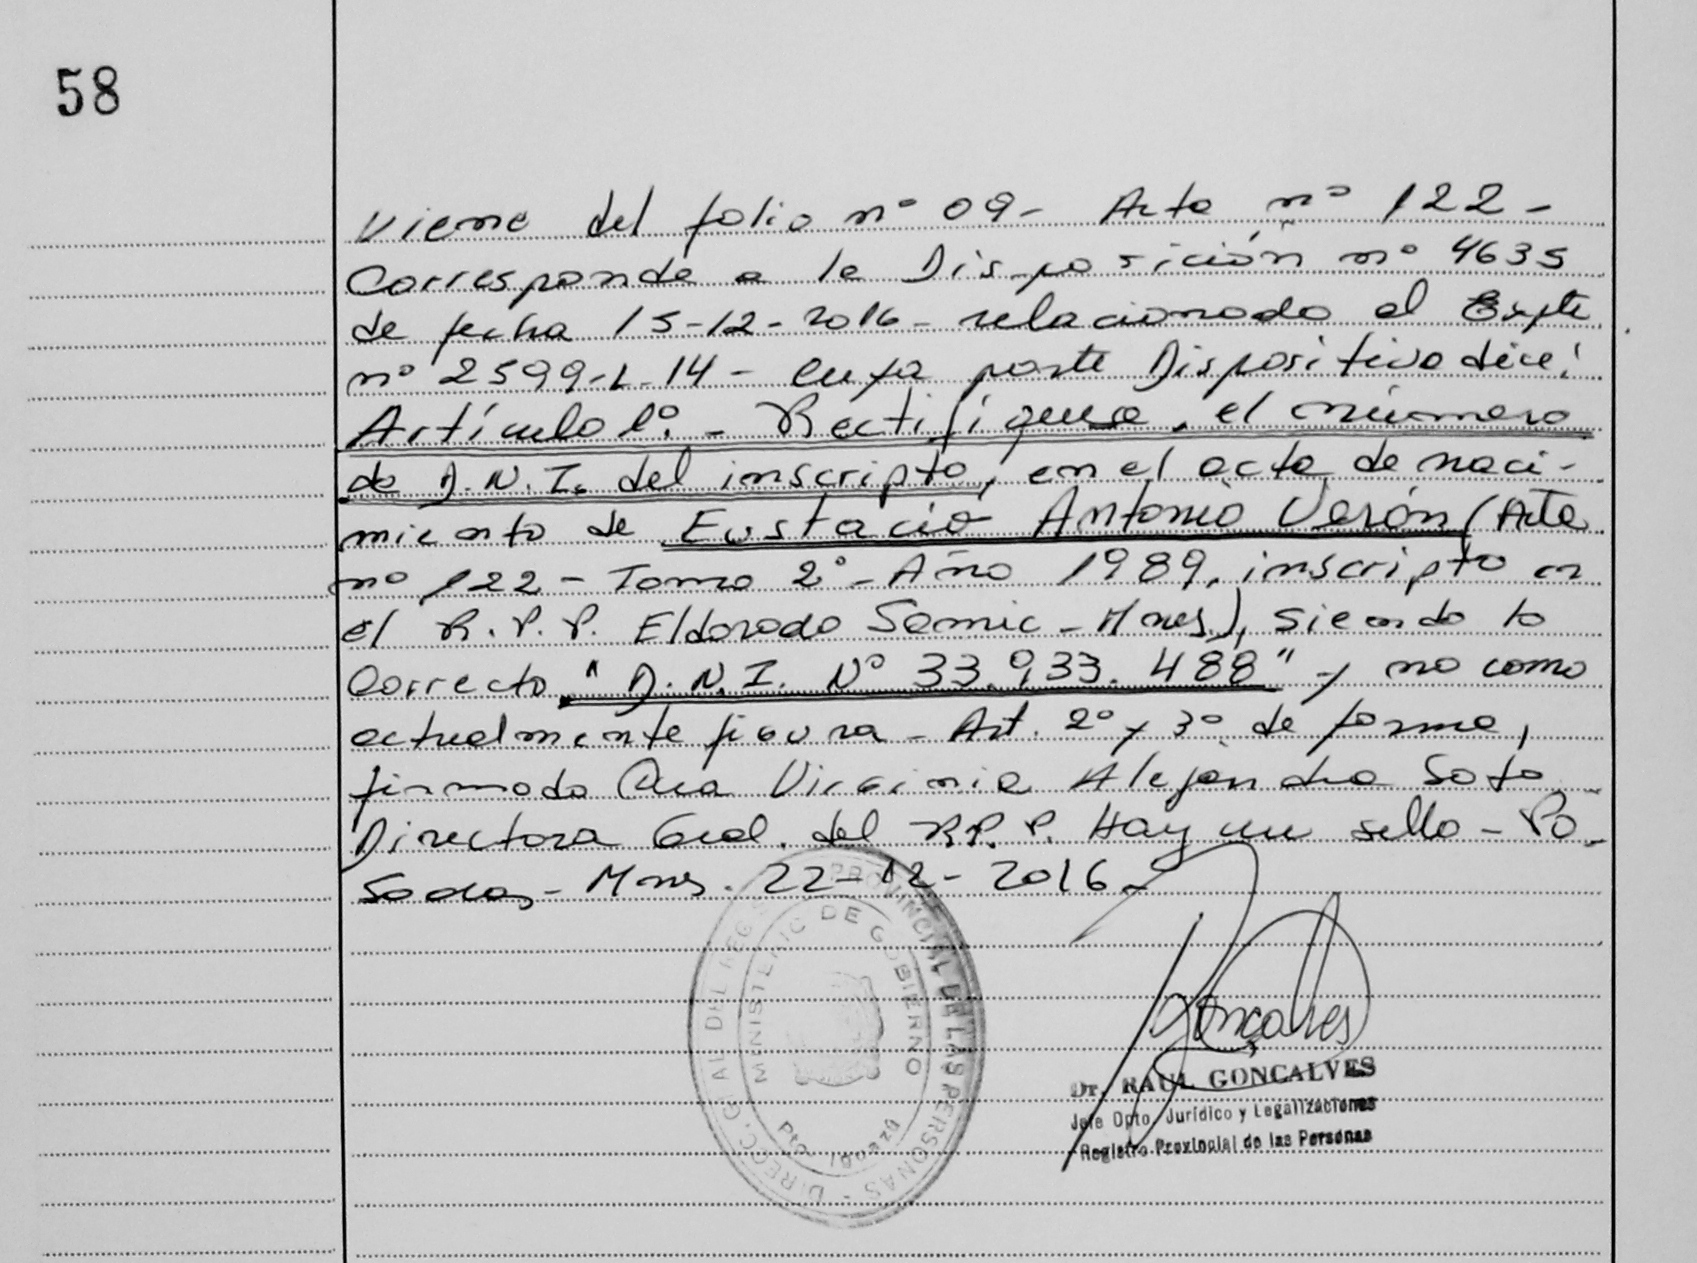 58
Viene del folio nº 09- Acta nº 122-
Corresponde a la Disposición nº 4635
de fecha 15-12-2016- relacionado al Expte
nº 2599-L-14- cuya parte Dispositiva dice:
Artículo 1º.- Rectifíquese, el número
de D.N.I. del inscripto, en el acta de naci-
miento de Eustacio Antonio Verón (Acta
nº 122- Tomo 2º- Año 1989, inscripto en
el R.P.P. Eldorado Samic - Mnes), siendo lo
Correcto "D.N.I. Nº 33.933.488" y no como
actualmente figura - Art. 2º y 3º de forma,
firmado Virginia Alejandra Soto
Directora Gral. del R.P.P. Hay un sello - Po-
sadas - Mnes. 22-12-2016-
DIRECC. GRAL DEL REG. PROVINCIAL DE LAS PERSONAS -
MINISTERIO DE GOBIERNO
Pto. Iguazú
Gonçalves
Dr. RAUL GONÇALVES
Jefe Dpto. Jurídico y Legalizaciones
Registro Provincial de las Personas